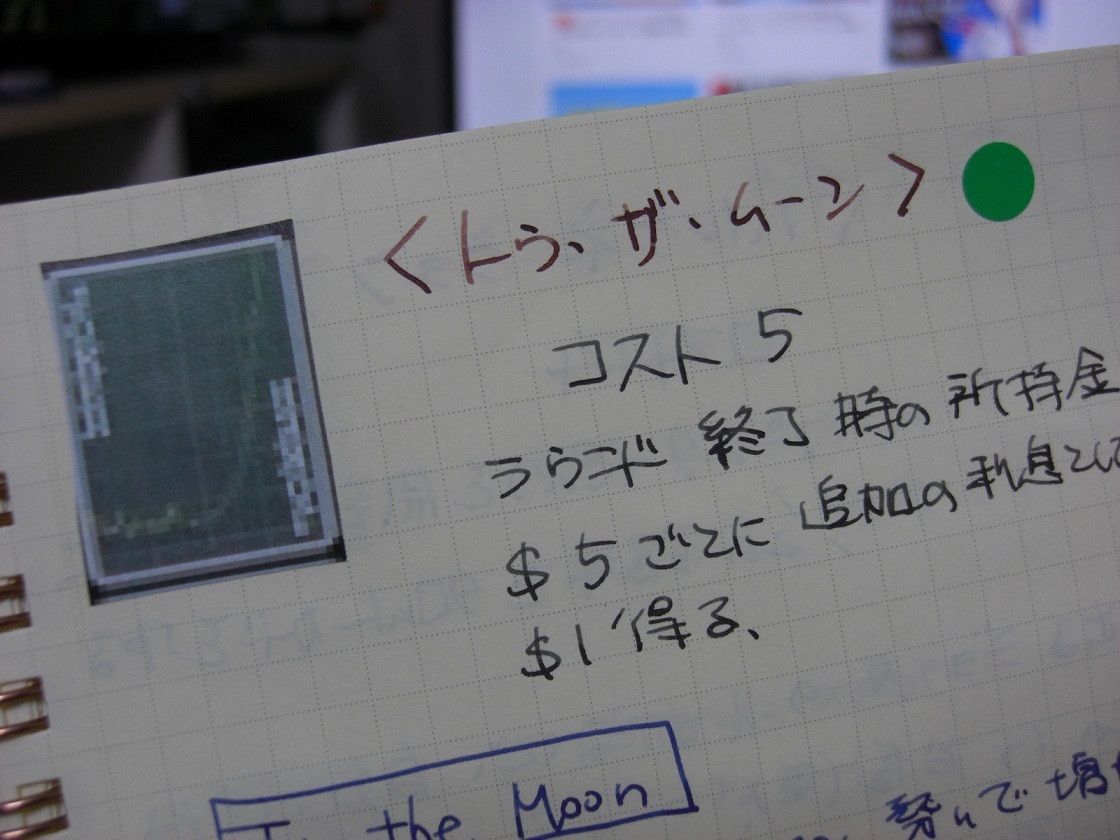 <トゥ・ザ・ムーン>
コスト 5
ラウンド 終了 時の 所持金
$5ごとに 追加の利息として
$1 得る、
To the Moon
で